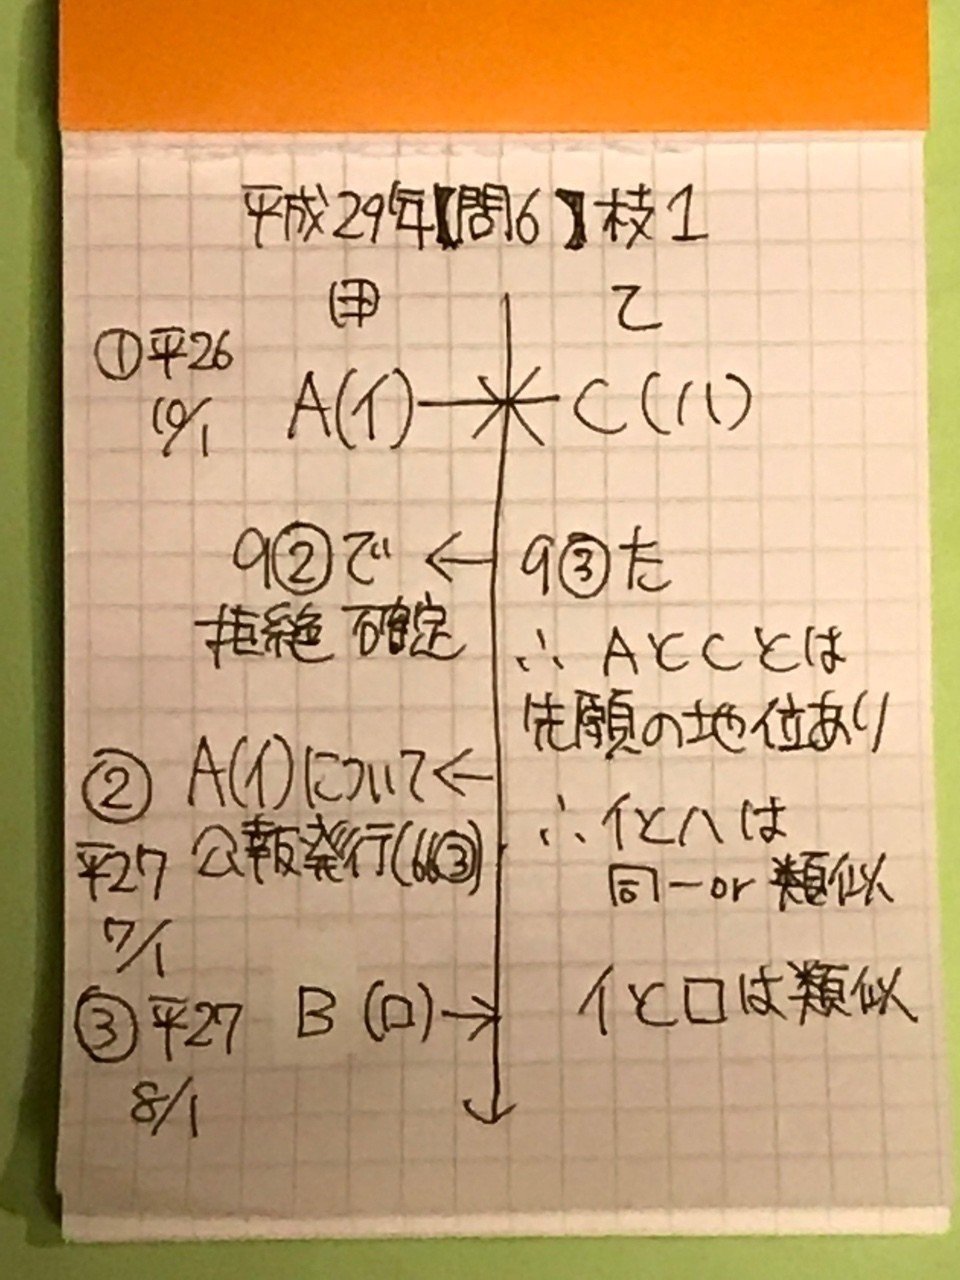 平成29年【問6】枝1
甲 乙
①平26 10/1 A(イ) → ← C(ハ)
9②で ← 9③た
拒絶確定 ∴AとCとは
先願の地位あり
② A(イ)について ←
∴イとハは
平27 公報発行(66③)
同一or類似
7/1
③平27 B(ロ)→ イとロは類似
8/1